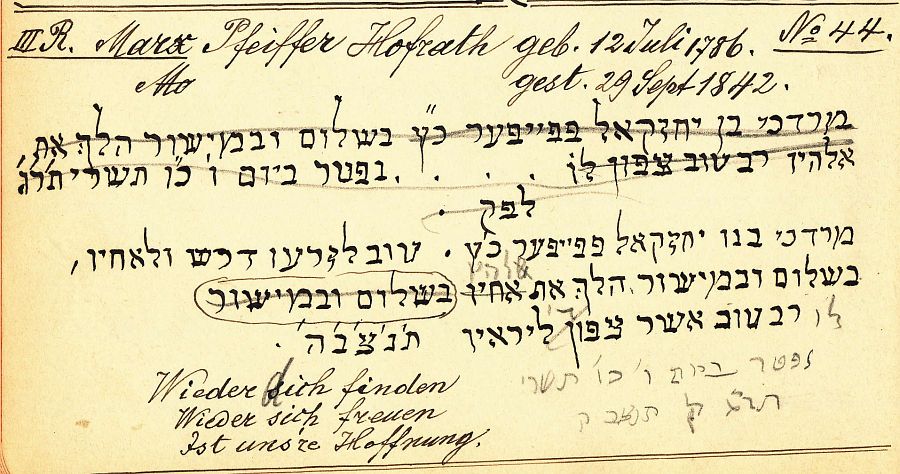 III R. Marx Pfeiffer Hofrath geb. 12 Juli 1786. No 44.
Mo gest. 29 Sept 1842.
מרדכי בן יחזקאל פפייפער כ״ץ בשלום ובמישור הלך את
אלהיו רב טוב צפון לו . . . . נפטר ביום ו' כ״ו תשרי תר״ג
לפק .
מרדכי בנו יחזקאל פפייפער כ״ץ . טוב לזרעו דרש ולאחיו,
אלהיו
בשלום ובמישור הלך את אחיו בשלום ובמישור
לו רב טוב אשר צפון ליראיו ת'נ'צ'ב'ה' .
נפטר ביום ו' כו' תשרי
תר״ג ל תנצב
Wieder sich finden
Wieder sich freuen
Ist unsre Hoffnung.